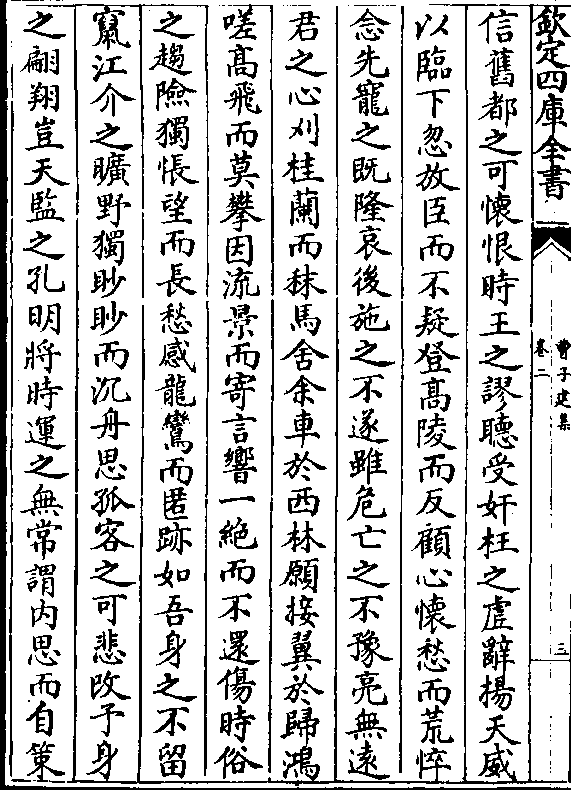 欽定四庫全書
曹子建集
卷二
三
信舊都之可懷恨時王之謬聽受奸枉之虛辭揚天威
以臨下忽放臣而不疑登高陵而反顧心懷愁而荒悴
念先寵之既隆哀後施之不遂雖危亡之不豫亮無遠
君之心刈桂蘭而秣馬舍余車於西林願接翼於歸鴻
嗟高飛而莫攀因流景而寄言響一絶而不還傷時俗
之趨險獨悵望而長愁感龍鸞而匿跡如吾身之不留
竄江介之曠野獨眇眇而汎舟思孤客之可悲改予身
之翩翔豈天監之孔明將時運之無常謂內思而自策